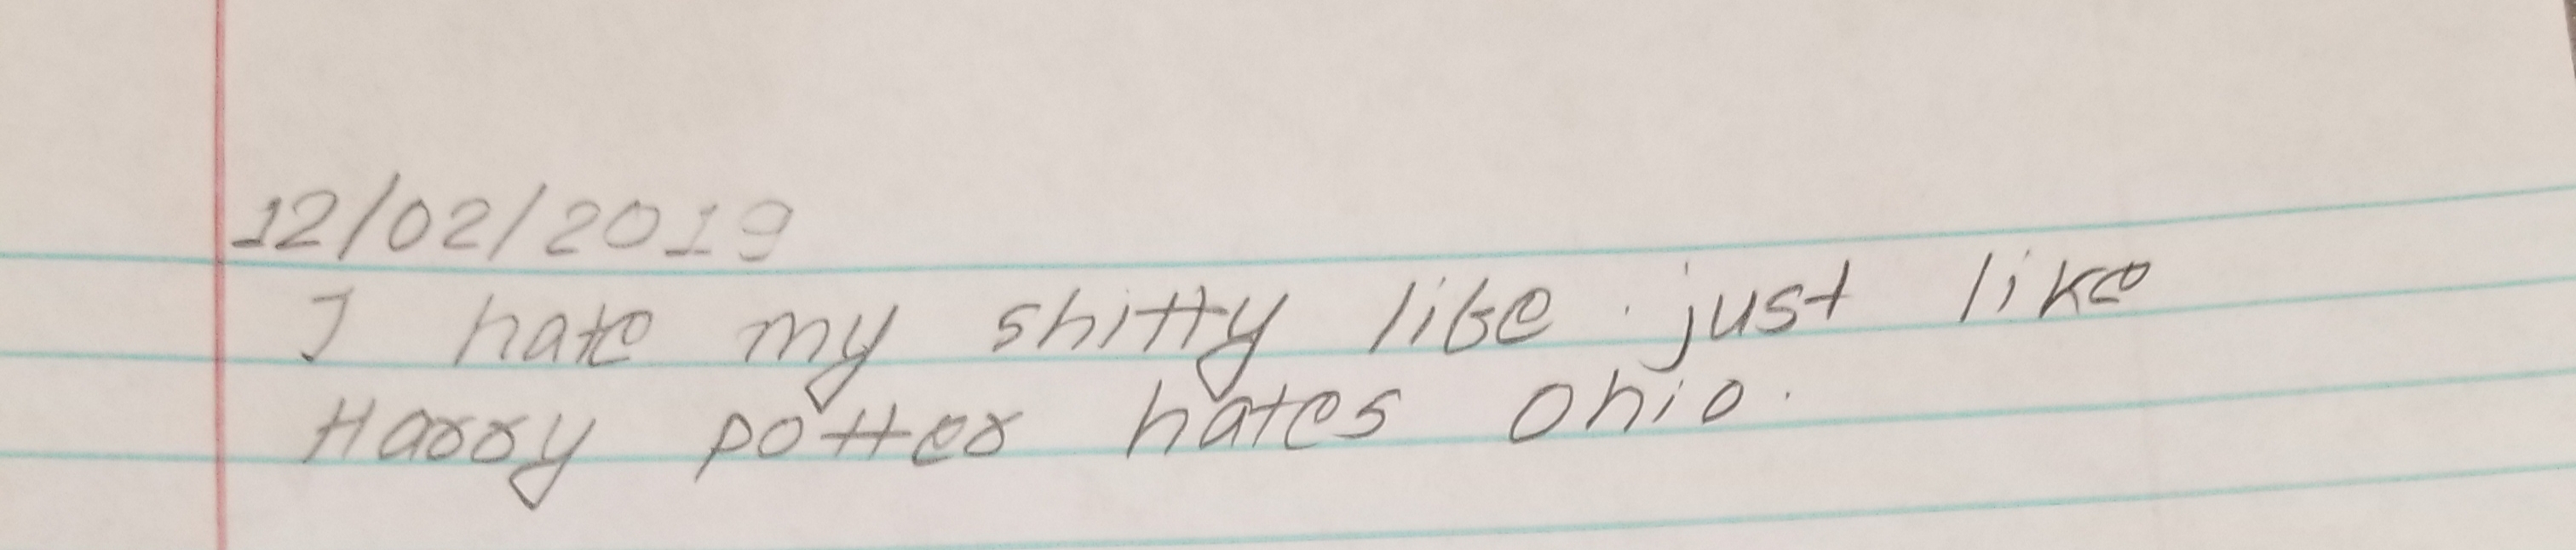 12/02/2019
I hate my shitty life. just like
Harry potter hates ohio.